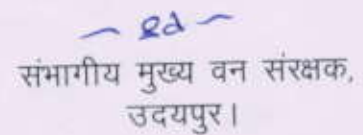 ~ sd ~
संभागीय मुख्य वन संरक्षक,
उदयपुर।